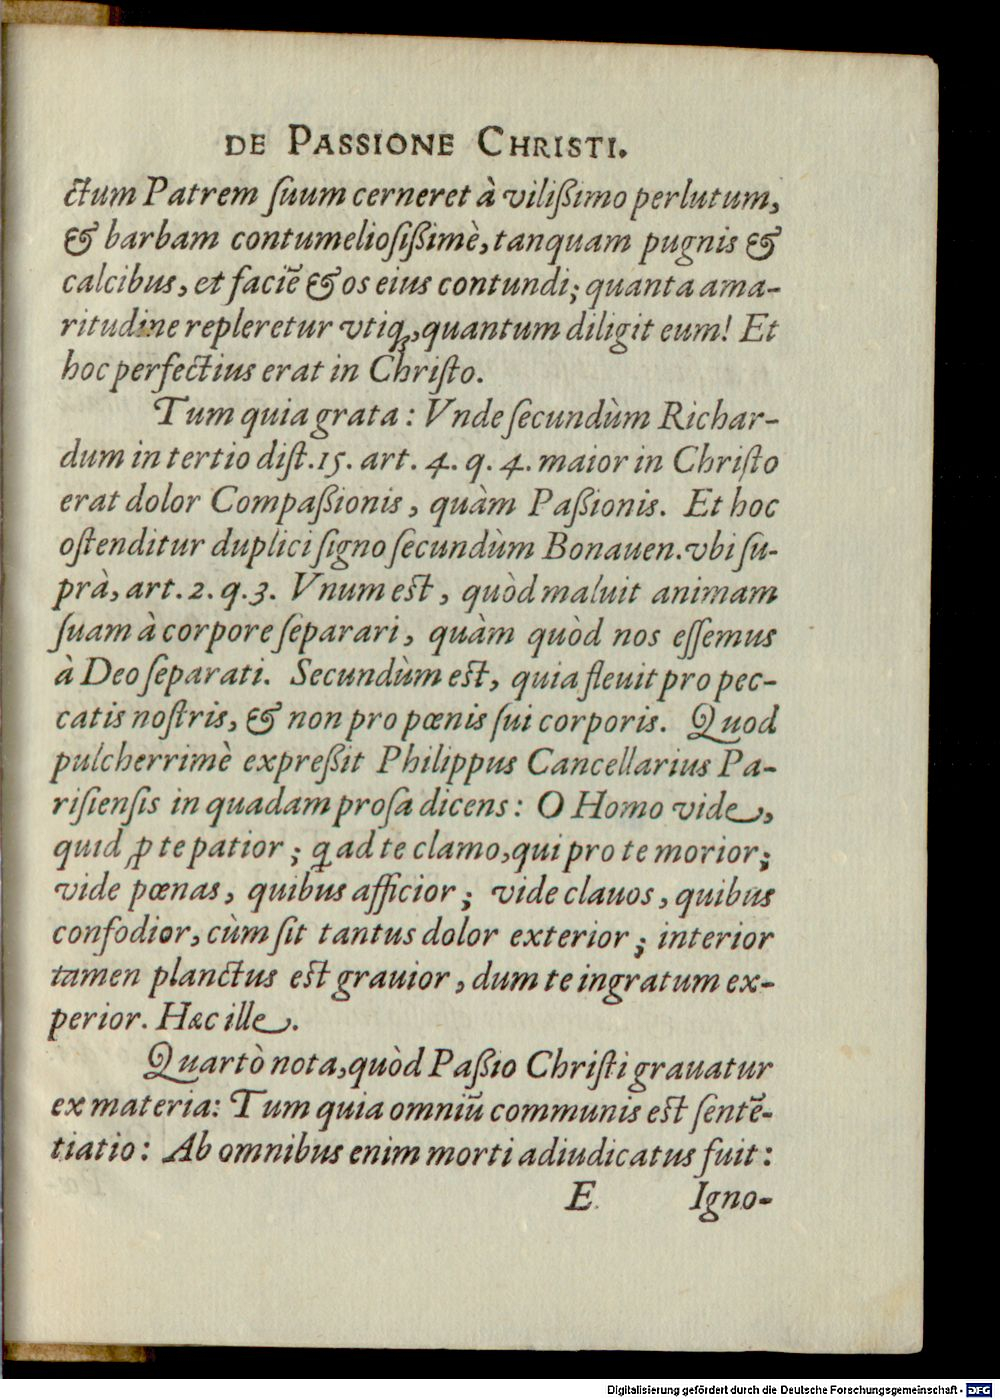 DE PASSIONE CHRISTI.
ctum Patrem ſuum cerneret à vilißimo perlutum,
& barbam contumelioſißimè, tanquam pugnis &
calcibus, et faciē & os eius contundi; quanta ama-
ritudine repleretur vtiq;, quantum diligit eum! Et
hoc perfectius erat in Chriſto.
Tum quia grata: Vnde ſecundùm Richar-
dum in tertio diſt. 15. art. 4. q. 4. maior in Chriſto
erat dolor Compaßionis, quàm Paßionis. Et hoc
oſtenditur duplici ſigno ſecundùm Bonauen. vbi ſu-
prà, art. 2. q. 3. Vnum est, quòd maluit animam
ſuam à corpore ſeparari, quàm quòd nos eſſemus
à Deo ſeparati. Secundùm est, quia fleuit pro pec-
catis noſtris, & non pro pœnis ſui corporis. Quod
pulcherrimè expreßit Philippus Cancellarius Pa-
riſienſis in quadam proſa dicens: O Homo vide,
quid ꝓ te patior; q ad te clamo, qui pro te morior;
vide pœnas, quibus afficior; vide clauos, quibus
confodior, cùm ſit tantus dolor exterior; interior
tamen planctus est grauior, dum te ingratum ex-
perior. Hæc ille.
Quartò nota, quòd Paßio Chriſti grauatur
ex materia: Tum quia omniū communis est ſentē-
tiatio: Ab omnibus enim morti adiudicatus fuit:
E Igno-
Digitalisierung gefördert durch die Deutsche Forschungsgemeinschaft - DFG